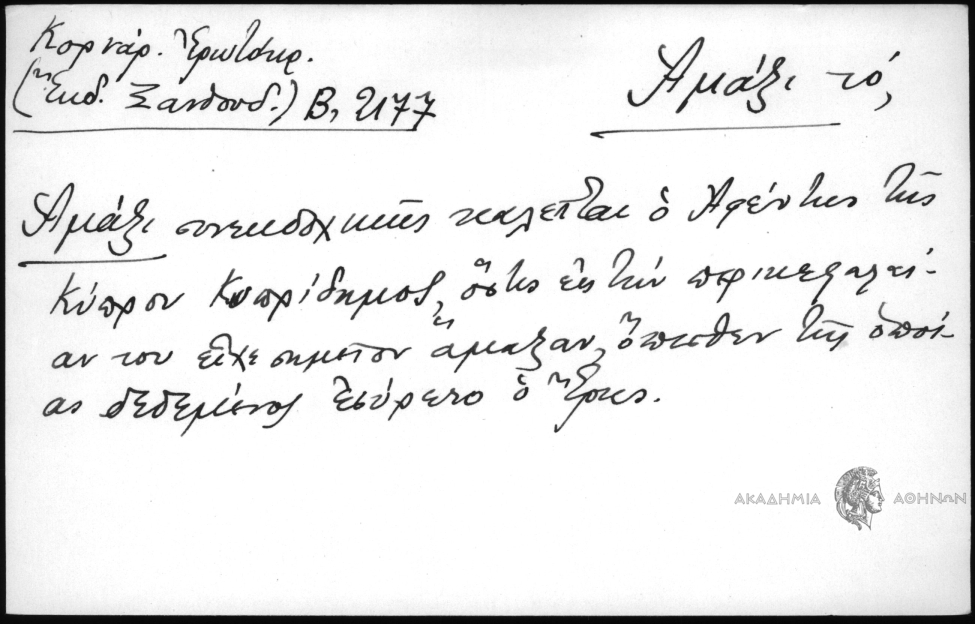 Κορνάρ. Ἐρωτόκρ.
(Ἔκδ. Ξανθουδ.) Β, 2177
Ἁμάξι τό,
Ἁμάξι συνεκδοχικῶς καλεῖται ὁ Ἀφέντης τῆς
Κύπρου Κυπρίδημος, ὅστις εἰς τὴν περικεφαλαί-
αν του εἶχε σημεῖον ἅμαξαν, ὄπισθεν τῆς ὁποί-
ας δεδεμένος ἐσύρετο ὁ Ἔρως.
ΑΚΑΔΗΜΙΑ ΑΘΗΝΩΝ